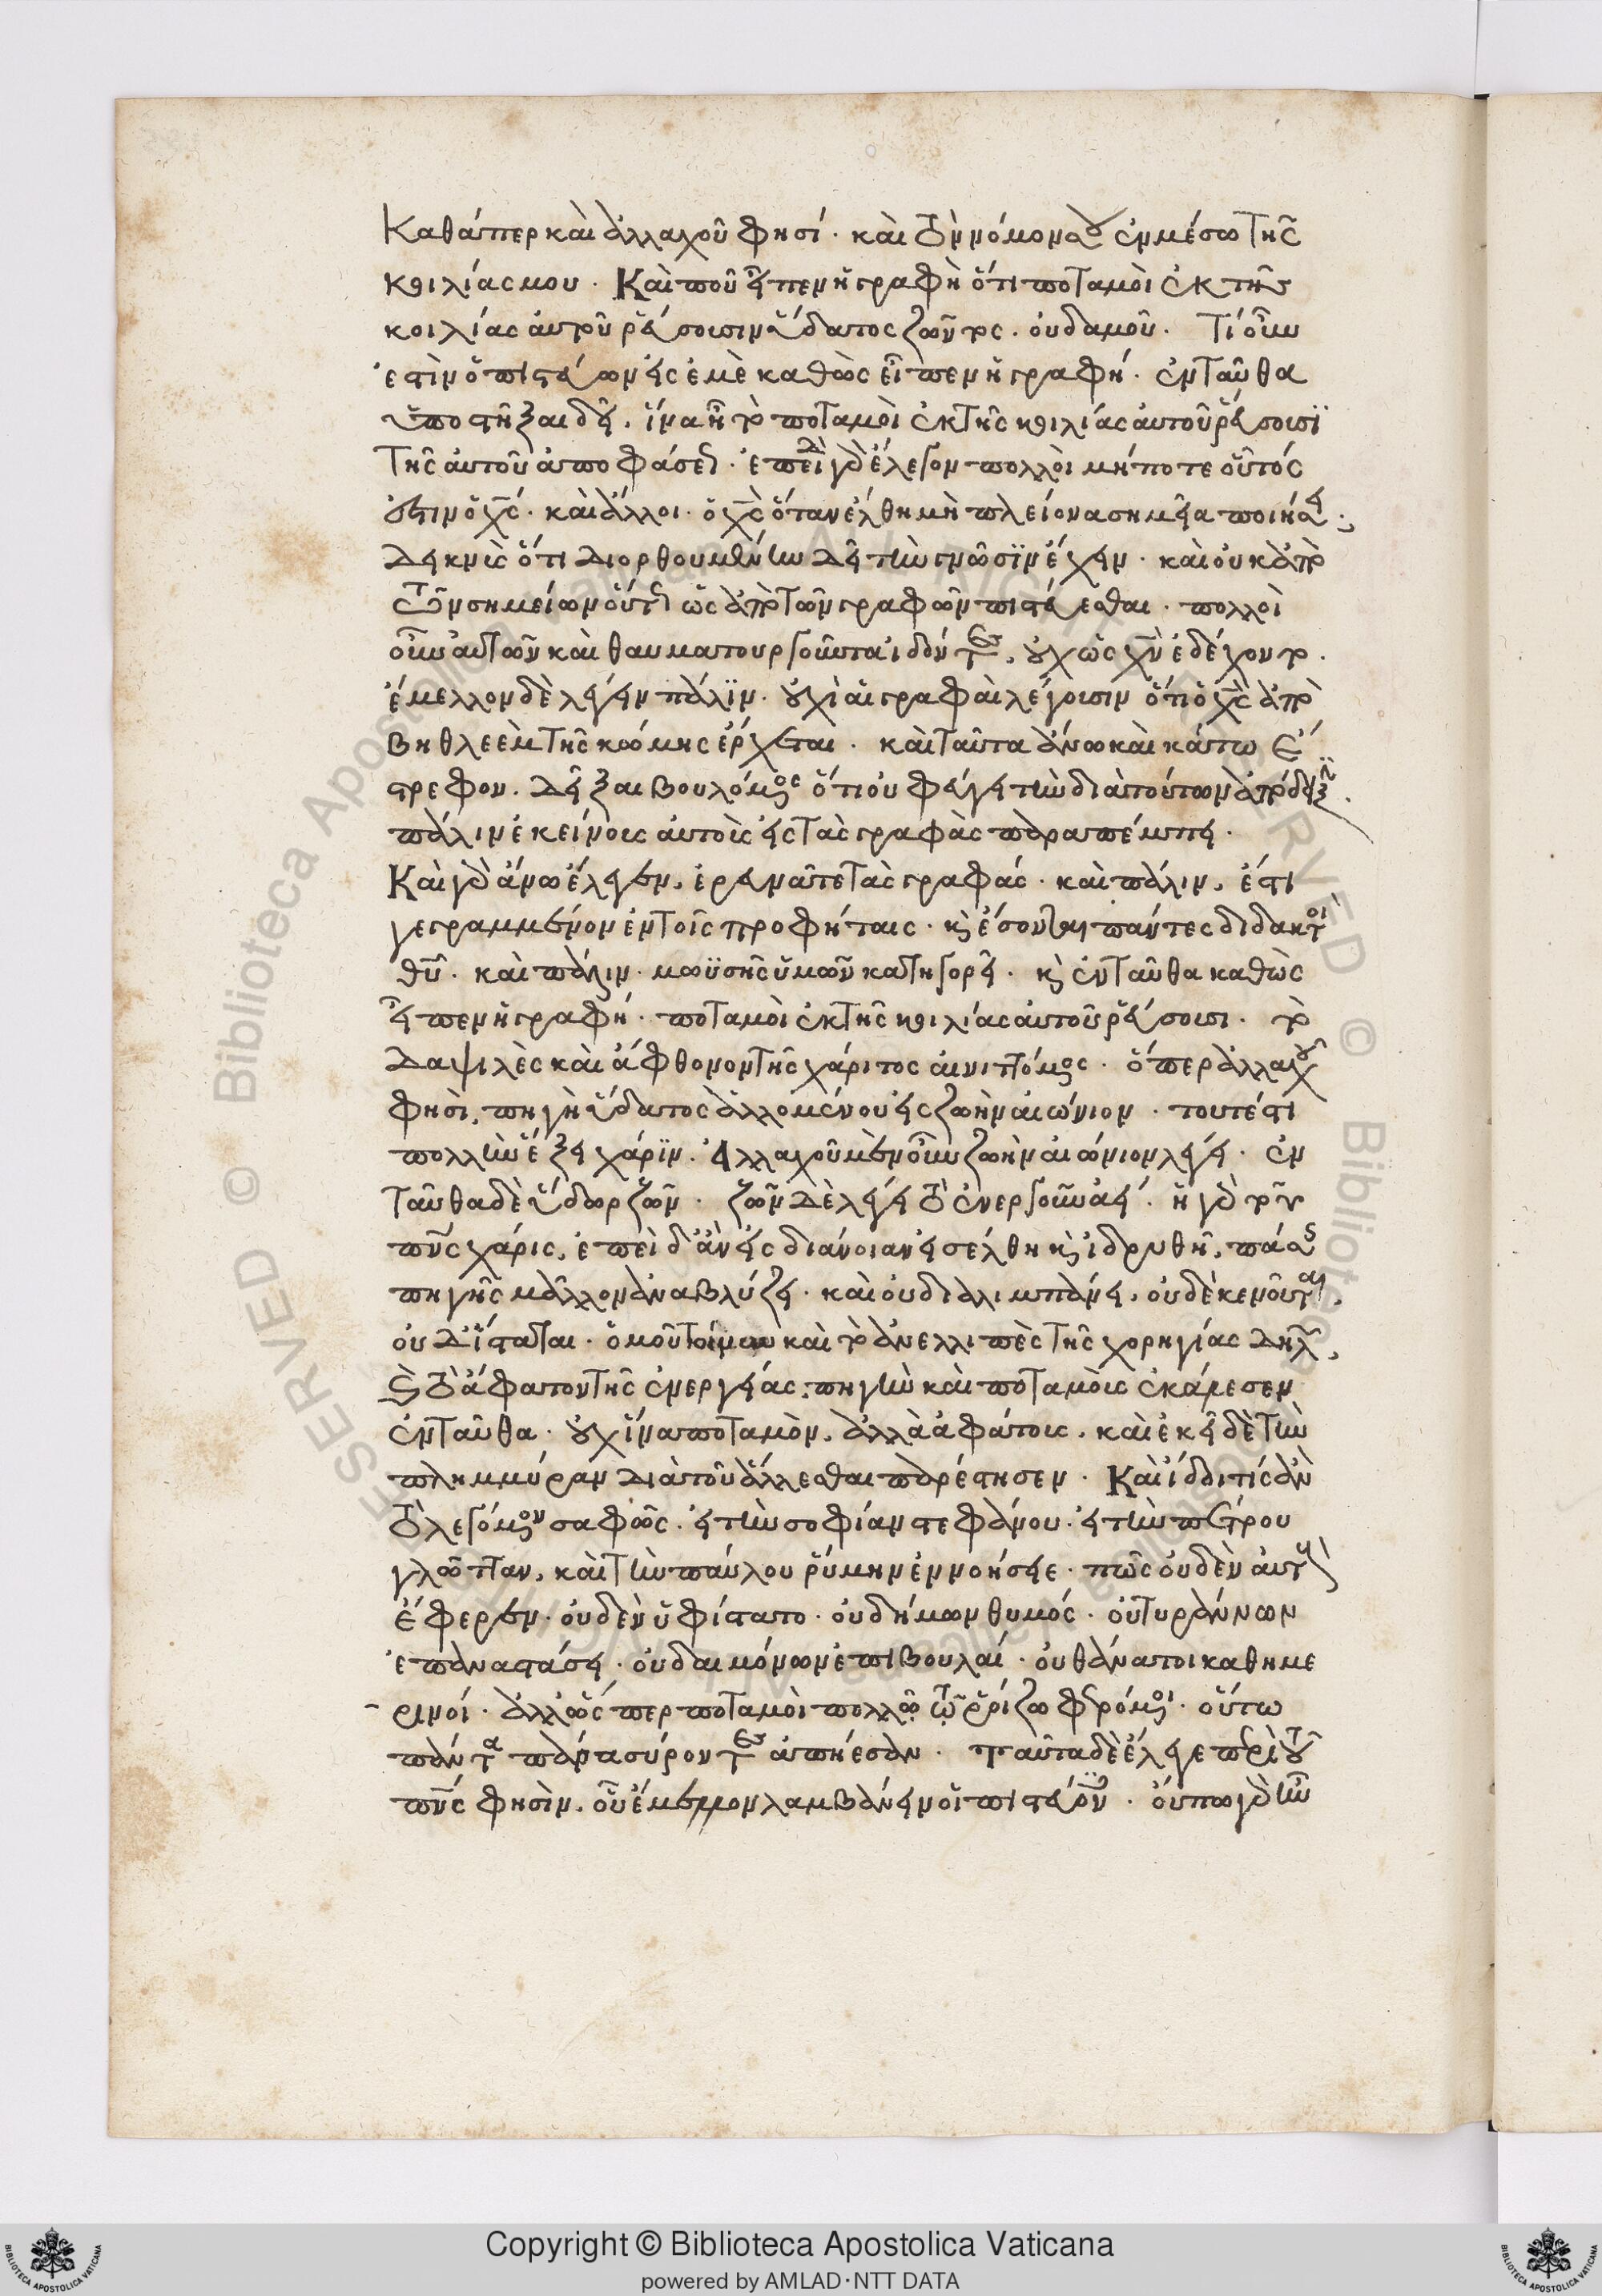 Καθάπερ καὶ ἀλλαχοῦ φησί· καὶ τὸν νόμον σου ἐν μέσω τῆς
κοιλίας μου· Καὶ ποῦ εἶπεν ἡ γραφὴ ὅτι ποταμοὶ ἐκ τῆς
κοιλίας αὐτοῦ ῥεύσουσιν ὕδατος ζῶντος· οὐδαμοῦ· Τί οὖν
ἐστὶν ὁ πιστεύων εἰς ἐμὲ καθὼς εἶπεν ἡ γραφή· ἐνταῦθα
ὑποστῆξαι δεῖ, ἵνα ἦ τὸ ποταμοὶ ἐκ τῆς κοιλίας αὐτοῦ ῥεύσουσϊ
τῆς αὐτοῦ ἀποφάσεως· ἐπειδὴ γὰρ ἔλεγον πολλοὶ μήποτε οὗτός
ἐστιν ὁ χς· καὶ ἄλλοι· ὁ χς ὅταν ἔλθη μὴ πλείονα σημεῖα ποιήσει·
δείκνυσιν ὅτι διορθουμένην δεῖ τὴν γνῶσϊν ἔχειν· καὶ οὐκ ἀπὸ
τῶν σημείων οὕτως ὡς ἀπὸ τῶν γραφῶν πιστεύεσθαι· πολλοὶ
οὖν αὐτῶν καὶ θαυματουργοῦντα ἰδόντες, οὐχ ὡς χν ἐδέχοντο·
ἔμελλον δὲ λέγειν πάλϊν· οὐχὶ αἱ γραφαὶ λέγουσιν ὅτι ὁ χς ἀπὸ
βηθλεὲμ τῆς κώμης ἔρχεται· καὶ ταῦτα ἄνω καὶ κάτω ἔ
στρεφον. δεῖξαι βουλόμενος ὅτι οὐ φεύγει τὴν διὰ τούτων ἀπόδειξιν·
πάλιν ἐκείνοις αὐτοῖς εἰς τὰς γραφὰς παραπέμπει·
Καὶ γὰρ ἄνω ἔλεγεν, ἐρευνᾶτε τὰς γραφάς· καὶ πάλιν, ἔστι
γεγραμμένον ἐν τοῖς προφήταις· κ ἔσονται πάντες διδακτοὶ
θυ· καὶ πάλιν· μωϋσῆς ὑμῶν κατηγορεῖ· κ ἐνταῦθα καθὼς
εἶπεν ἡ γραφή· ποταμοὶ ἐκ τῆς κοιλίας αὐτοῦ ῥεύσουσι· τὸ
δαψιλὲς καὶ ἄφθονον τῆς χάριτος αἰνιττόμενος· ὅπερ ἀλλαχοῦ
φησὶ, πηγὴ ὕδατος ἁλλομένου εἰς ζωὴν αἰώνιον· τουτέστι
πολλὴν ἕξει χάρϊν. Ἀλλαχοῦ μὲν οὖν ζωὴν αἰώνιον λέγει· ἐν
ταῦθα δὲ ὕδωρ ζῶν· ζῶν δὲ λέγει τὸ ἐνεργοῦν ἀεί· ἡ γὰρ τοῦ
πνς χάρις, ἐπεὶ δ'ἂν εἰς διάνοιαν εἰσέλθη κ ἱδρυθῆ, πάσης
πηγῆς μᾶλλον ἀναβλύζει· καὶ οὐ διαλιμπάνει, οὐδὲ κενοῦται,
οὐ δὲ ἵσταται· ὁμοῦ τοίνυν καὶ τὸ ἀνελλιπὲς τῆς χορηγίας δηλῶν,
κ τὸ ἄφατον τῆς ἐνεργείας, πηγὴν καὶ ποταμοὺς ἐκάλεσεν
ἐνταῦθα· οὐχ ἕνα ποταμὸν, ἀλλὰ ἀφάτους, καὶ ἐκεῖ δὲ τὴν
πλημμύραν διὰ τοῦ ἅλλεσθαι παρέστησεν· Καὶ ἴδοι τίς ἂν
τὸ λεγόμενον σαφῶς. εἰ τὴν σοφίαν στεφάνου· εἰ τὴν πέτρου
γλῶτταν, καὶ τὴν παύλου ῥύμην ἐννοήσειε· πῶς οὐδὲν αὐτοὺς
ἔφερεν· οὐδὲν ὑφίστατο· οὐ δήμων θυμός· οὐ τυράννων
ἐπαναστάσεις· οὐ δαιμόνων ἐπιβουλαί· οὐ θάνατοι καθημε
ρινοί· ἀλλ' ὥσπερ ποταμοὶ πολλῶ τῶ ῥοίζω φερόμενοι· οὕτω
πάντα παρασύροντες ἀπήεσαν· Ταῦτα δὲ ἔλεγε περὶ τοῦ
πνς φησὶν, οὗ ἔμελλον λαμβάνειν οἱ πιστεύοντες· οὔπω γὰρ ἦν